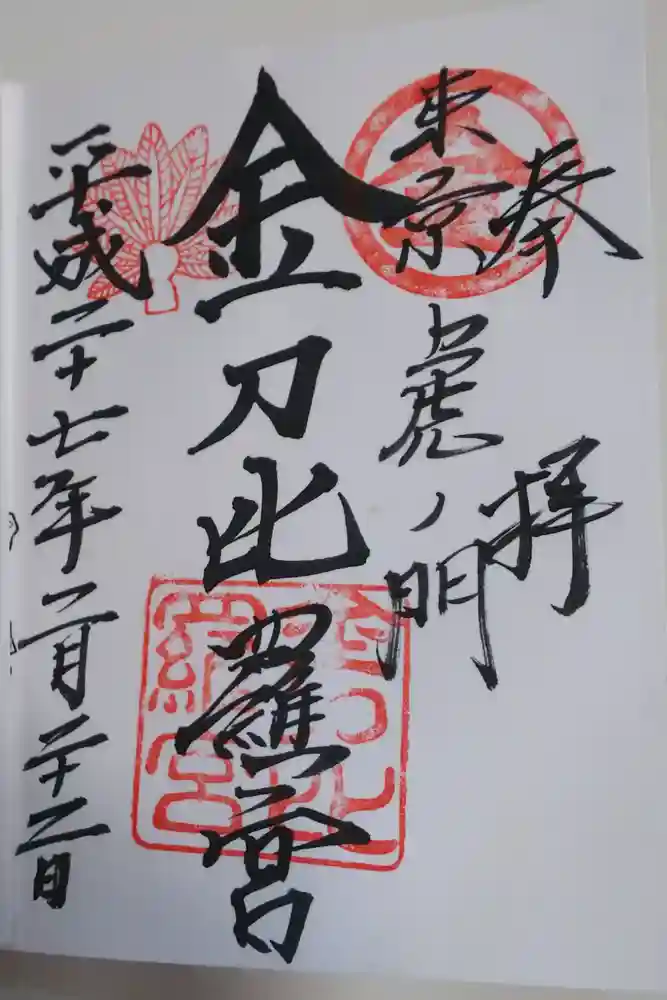 奉拝
東京虎ノ門
金刀比羅宮
平成二十七年二月二十二日